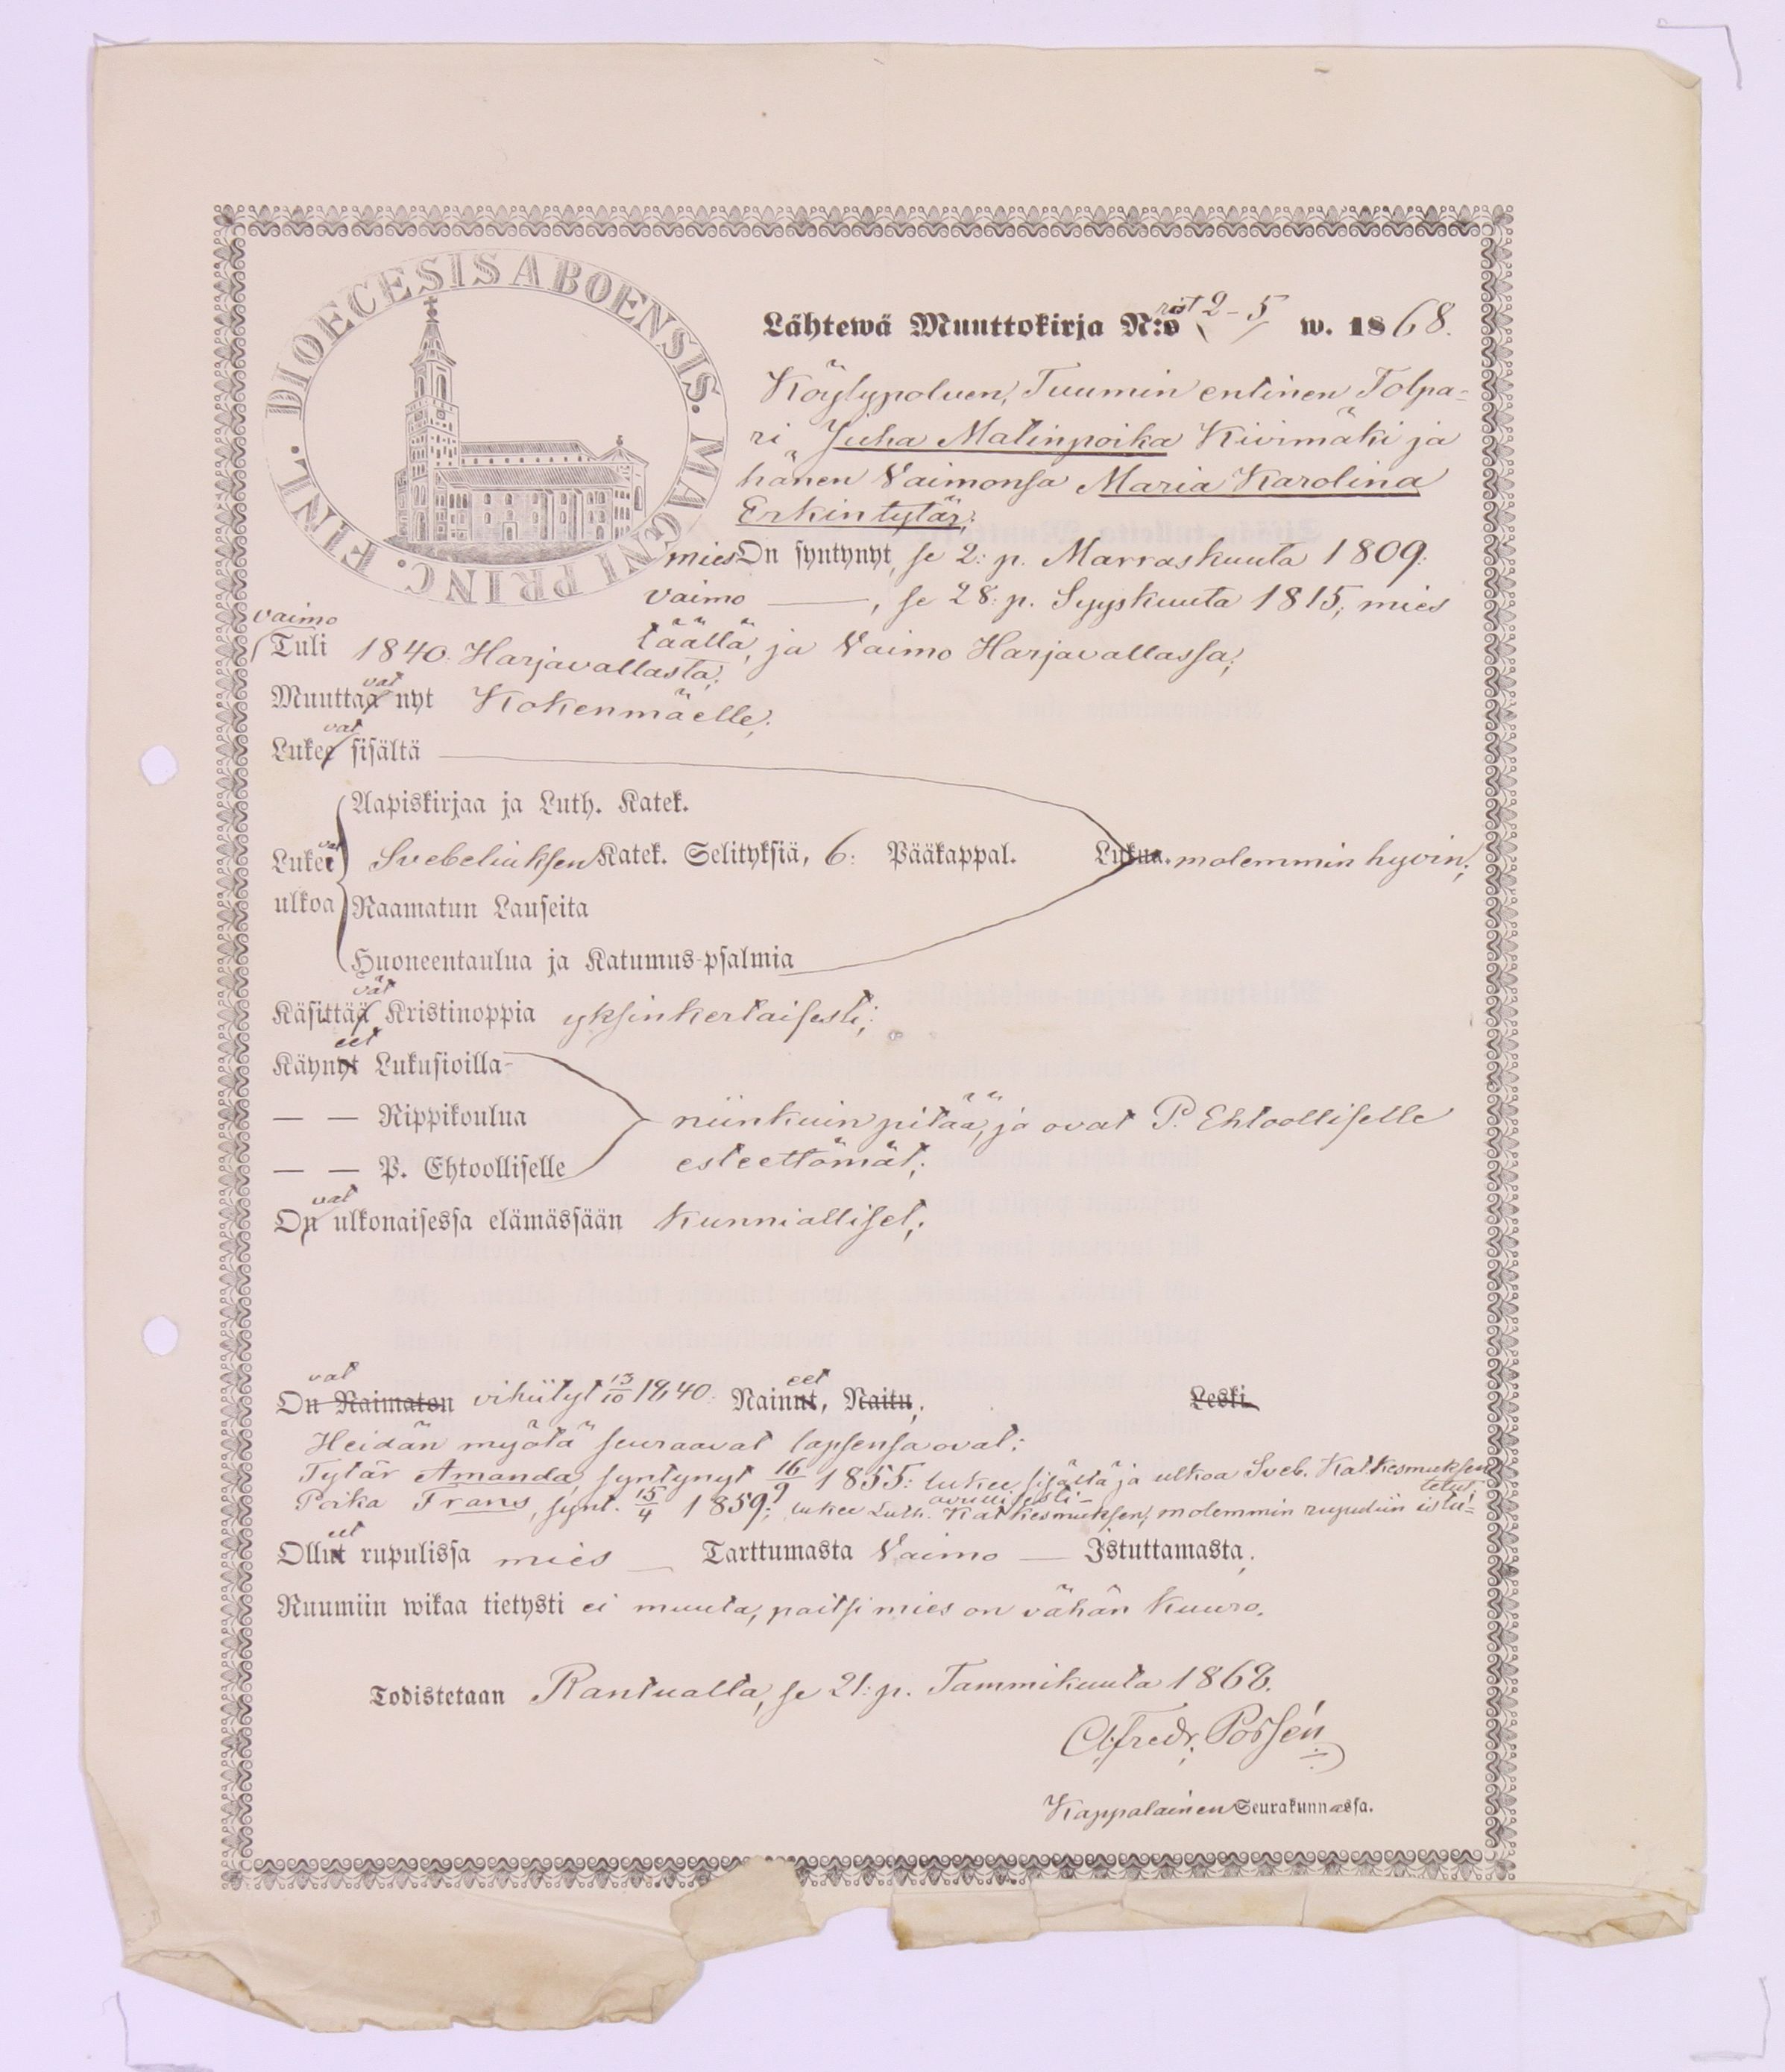 DIOECESIS ABOENSIS. MAGNI PRINC. FINL.
Lähtewä Muuttokirja N:o 2-5 w. 1868.
Köylypolven, Tuumin entinen Tolpa-
ri Juha Matinpoika Kivimäki ja
hänen Vaimonsa Maria Karolina
Erkintytär;
mies On syntynyt, se 2: p. Marraskuuta 1809:
vaimo ———, se 28: p. Syyskuuta 1815; mies
täällä, ja Vaimo Harjavallassa;
vaimo
Tuli 1840: Harjavallasta;
Muuttaa vat nyt Kokenmäelle;
Lukee vat sisältä
Aapiskirjaa ja Luth. Katek.
Lukee vat Svebeliuksen Katek. Selityksiä, 6: Pääkappal. Lukua. molemmin hyvin;
ulkoa Raamatun Lauseita
Huoneentaulua ja Katumus-psalmia
Käsittää vät Kristinoppia yksinkertaisesti;
Käynyt eet Lukusioilla
— — Rippikoulua niinkuin pitää, ja ovat P. Ehtoolliselle
— — P. Ehtoolliselle esteettömät;
On vat ulkonaisessa elämässään Kunnialliset;
On vat Naimaton vihityt 13/10 1840: Nainut eet, Naitu; Leski
Heidän myötä seuraavat lapsensa ovat:
Tytär Amanda, syntynyt 16/9 1855: lukee sisältä ja ulkoa Sveb. Kat. kesmuksen
avullisesti- tetut;
Poika Frans, synt. 15/4 1859; lukee Luth. Kat kesmuksen, molemmin rupuliin istu-
Ollut eet rupulissa mies — Tarttumasta Vaimo — Istuttamasta;
Ruumiin wikaa tietysti ei muuta, paitsi mies on vähän kuuro.
Todistetaan Kantualla, se 21: p. Tammikuuta 1868.
Alfredr. Possén
Kappalainen Seurakunnassa.